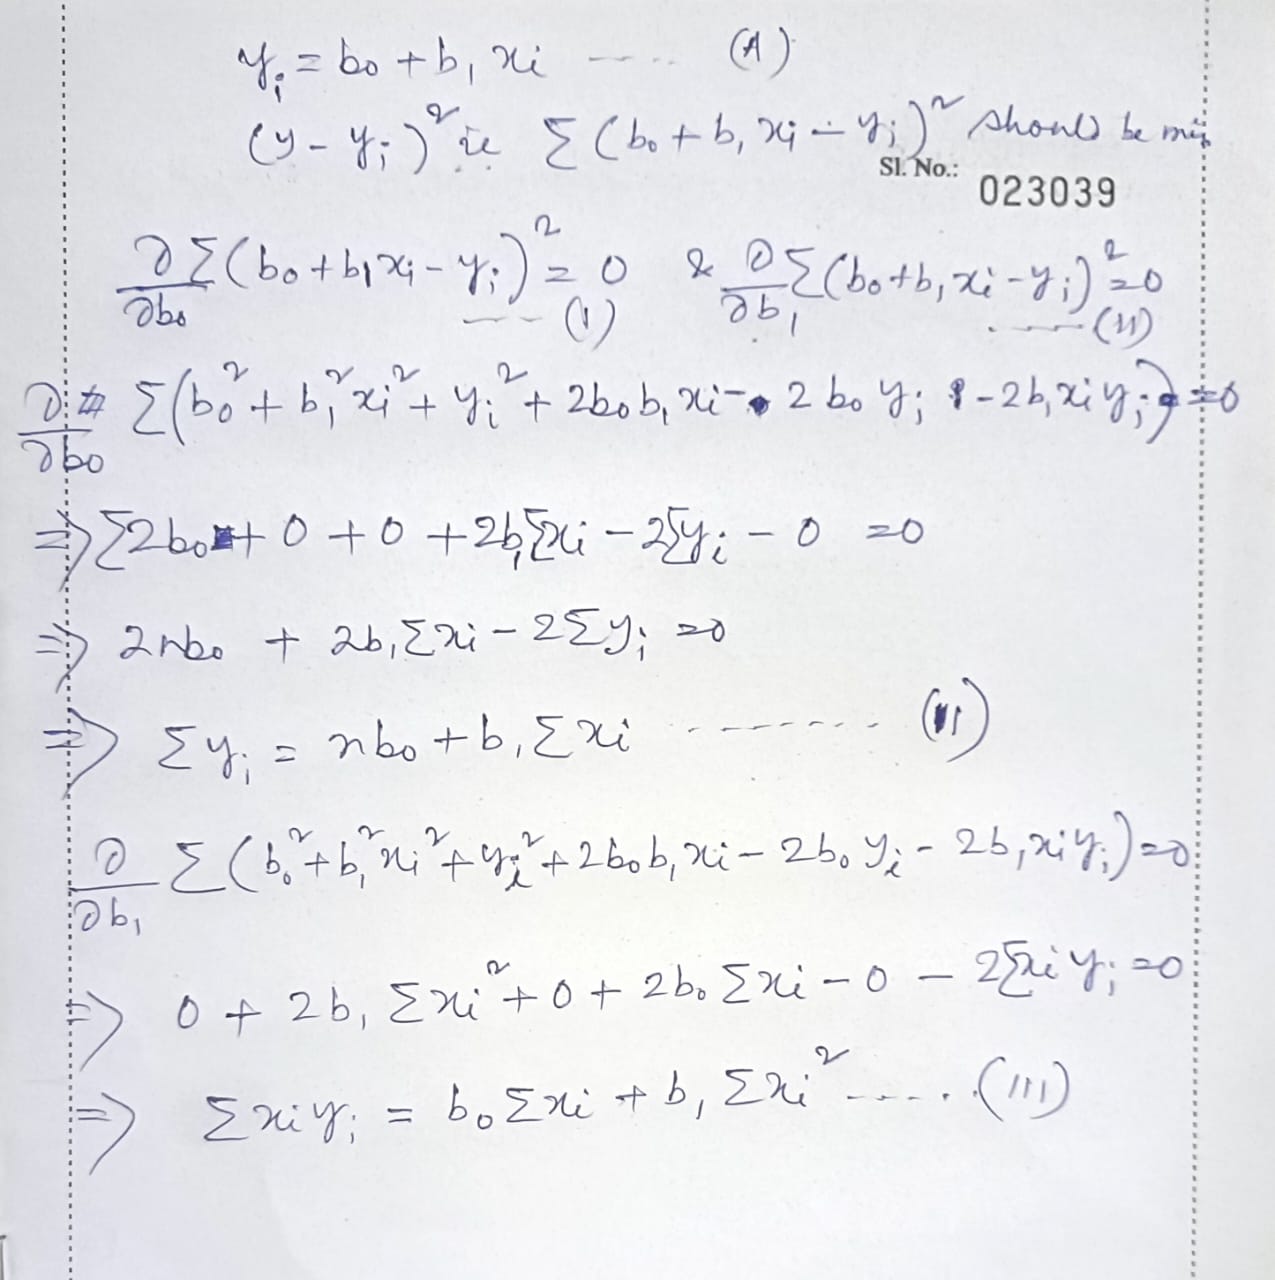 yᵢ = b₀ + b₁ xᵢ ---- (A)
(y - yᵢ)² ie Σ (b₀ + b₁ xᵢ - yᵢ)² should be min
Sl. No.: 023039
∂/∂b₀ Σ(b₀ + b₁xᵢ - yᵢ)² = 0 & ∂/∂b₁ Σ(b₀ + b₁xᵢ - yᵢ)² = 0
---- (I) ---- (II)
∂/∂b₀ Σ(b₀² + b₁²xᵢ² + yᵢ² + 2b₀b₁xᵢ - 2b₀yᵢ - 2b₁xᵢyᵢ) = 0
⇒ Σ2b₀ + 0 + 0 + 2b₁Σxᵢ - 2Σyᵢ - 0 = 0
⇒ 2nb₀ + 2b₁Σxᵢ - 2Σyᵢ = 0
⇒ Σyᵢ = nb₀ + b₁Σxᵢ -------- (II)
∂/∂b₁ Σ(b₀² + b₁²xᵢ² + yᵢ² + 2b₀b₁xᵢ - 2b₀yᵢ - 2b₁xᵢyᵢ) = 0
⇒ 0 + 2b₁Σxᵢ² + 0 + 2b₀Σxᵢ - 0 - 2Σxᵢyᵢ = 0
⇒ Σxᵢyᵢ = b₀Σxᵢ + b₁Σxᵢ² ------ (III)